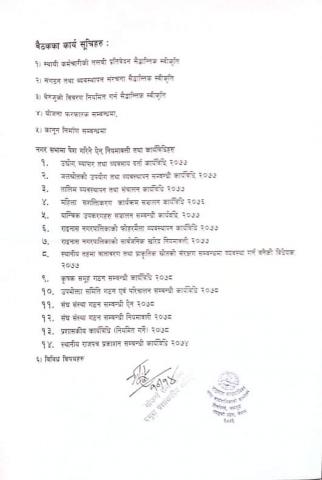 बैठकका कार्य सूचिहरु :
१) स्थायी कर्मचारीको तलबी प्रतिवेदन सैद्धान्तिक स्वीकृति
२) संगठन तथा व्यवस्थापन संरचना सैद्धान्तिक स्वीकृति
३) बेरुजुको विवरण नियमित गर्न सैद्धान्तिक स्वीकृति
४) योजना फरफारक सम्बन्धमा,
५) कानून निर्माण सम्बन्धमा
नगर सभामा पेश गरिने ऐन नियमावली तथा कार्यविधिहरु
१. उद्योग व्यापार तथा व्यवसाय दर्ता कार्यविधि २०७७
२. जलस्रोतको उपयोग तथा व्यवस्थापन सम्बन्धी कार्यविधि २०७७
३. तालिम व्यवस्थापन तथा संचालन कार्यविधि २०७७
४. महिला सशक्तिकरण कार्यक्रम सञ्चालन कार्यविधि २०७६
५. यान्त्रिक उपकरणहरु सञ्चालन सम्बन्धी कार्यविधि २०७७
६. राइनास नगरपालिकाको फोहरमैला व्यवस्थापन कार्यविधि २०७७
७. राइनास नगरपालिकाको सार्वजनिक खरिद नियमावली २०७७
८. स्थानीय तहमा वातावरण तथा प्राकृतिक स्रोतको संरक्षण सम्बन्धमा व्यवस्था गर्न बनेको विधेयक
२०७७
९. कृषक समूह गठन सम्बन्धी कार्यविधि २०७८
१०. उपभोक्ता समिति गठन एवं परिचालन सम्बन्धी कार्यविधि २०७८
११. संघ संस्था गठन सम्बन्धी ऐन २०७८
१२. संघ संस्था गठन सम्बन्धी नियमावली २०७८
१३. प्रशासकीय कार्यविधि (नियमित गर्ने) २०७८
१४. स्थानीय राजपत्र प्रकाशन सम्बन्धी कार्यविधि २०७४
६) विविध विषयहरु